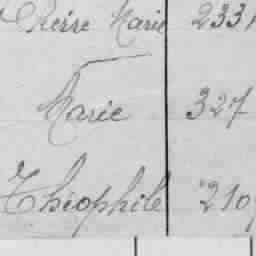 Pierre Marie 2331
Marie 327
Théophile 210